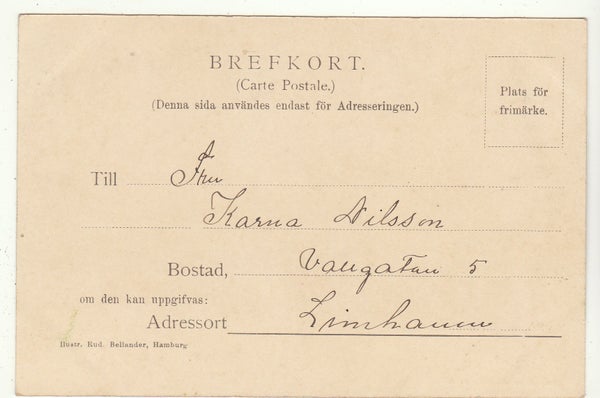 BREFKORT.
(Carte Postale.)
(Denna sida användes endast för Adresseringen.)
Plats för
frimärke.
Till Fru
Karna Nilsson
Bostad, Vallgatan 5
om den kan uppgifvas:
Adressort Limhamn
Ilustr. Rud. Bellander, Hamburg